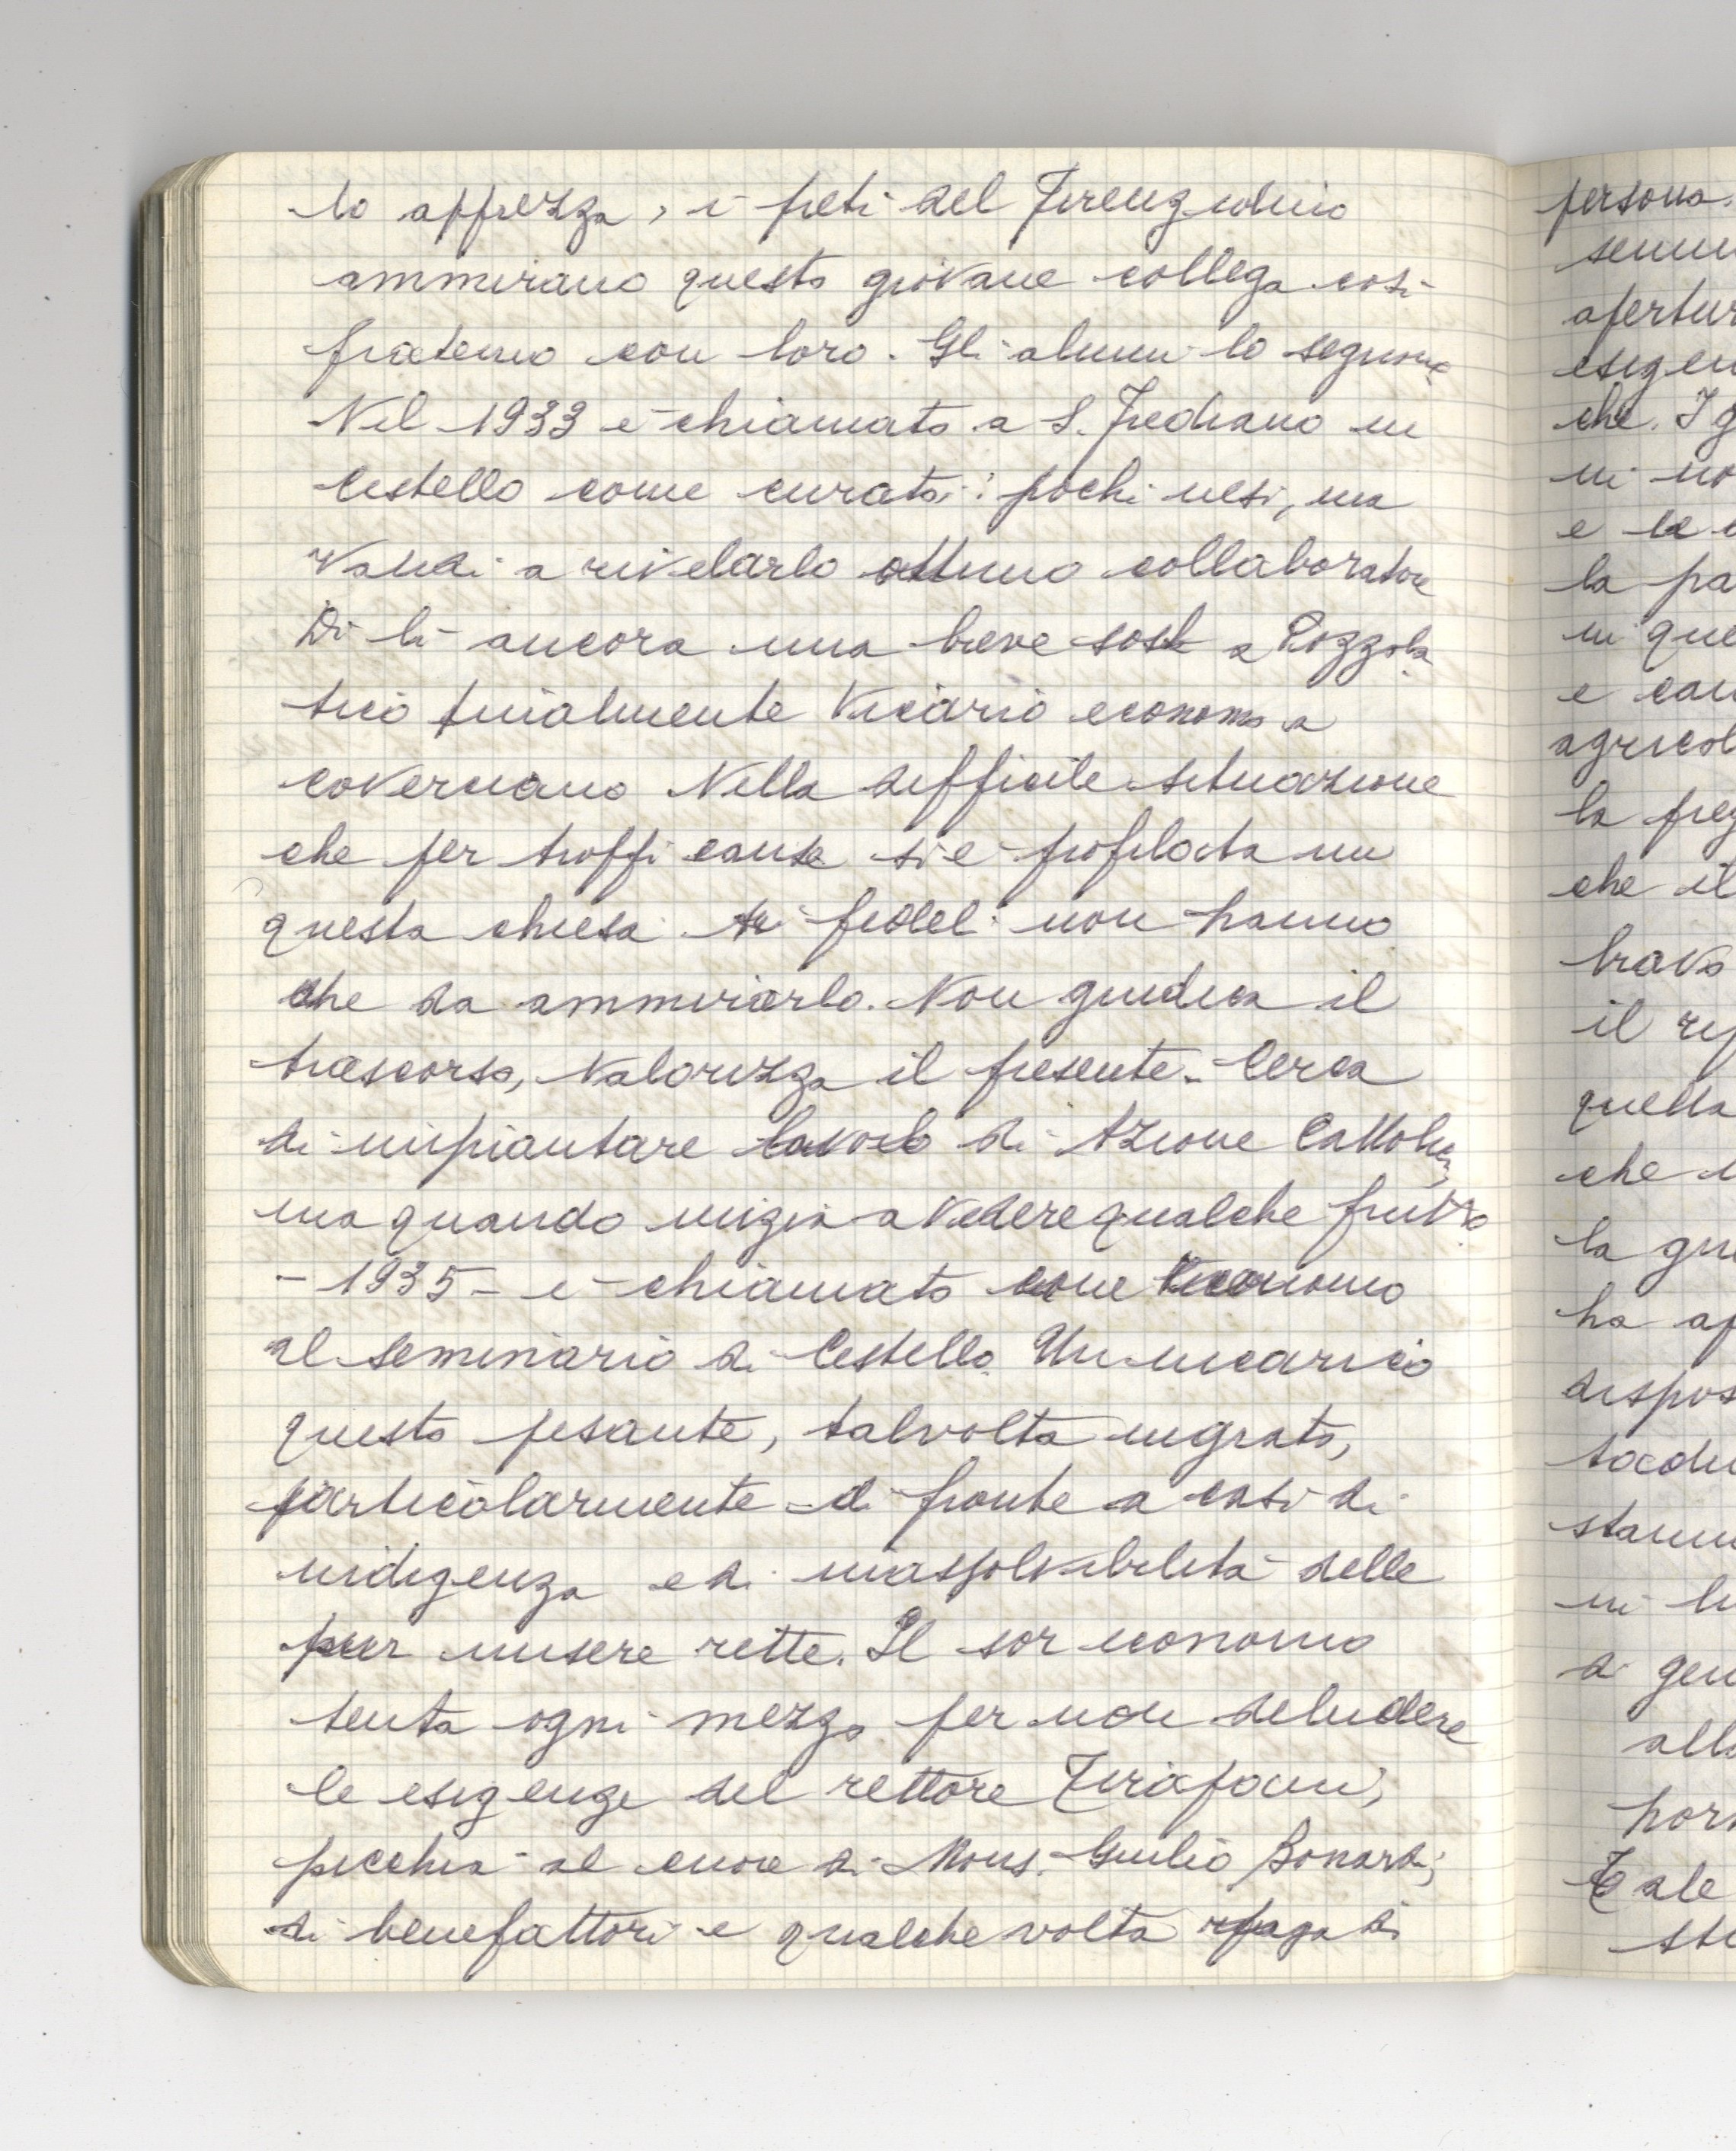 lo apprezza, i preti del Firenzuolino
ammirano questo giovane collega così
fraterno con loro. Gli alunni lo seguono
Nel 1933 è chiamato a S. Frediano in
Cestello come curato: pochi mesi, ma
validi a rivelarlo ottimo collaboratore
Di lì ancora una breve sosta a Pozzola
tico finalmente Vicario economo a
Coverciano Nella difficile situazione
che per troppi cause si è profilata in
questa chiesa i fedeli non hanno
che da ammirarlo. Non giudica il
trascorso, valorizza il presente. Cerca
di impiantare lavoro di Azione Cattolica
ma quando inizia a vedere qualche frutto
- 1935 - è chiamato come economo
al seminario di Cestello. Un incarico
questo pesante, talvolta ingrato,
particolarmente di fronte a casi di
indigenza e di inassolvibilità delle
pur misere rette. Il sor economo
tenta ogni mezzo per non deludere
le esigenze del rettore Tirapani,
picchia al cuore di Mons. Giulio Bonardi,
di benefattori e qualche volta paga di
persona.
apertur
esigen
che. I g
in no
e le
la pa
in que
e can
agricol
la preg
che il
bravo
il rip
quella
che
la gu
ha ap
dispos
in
di gen
alla
Tale